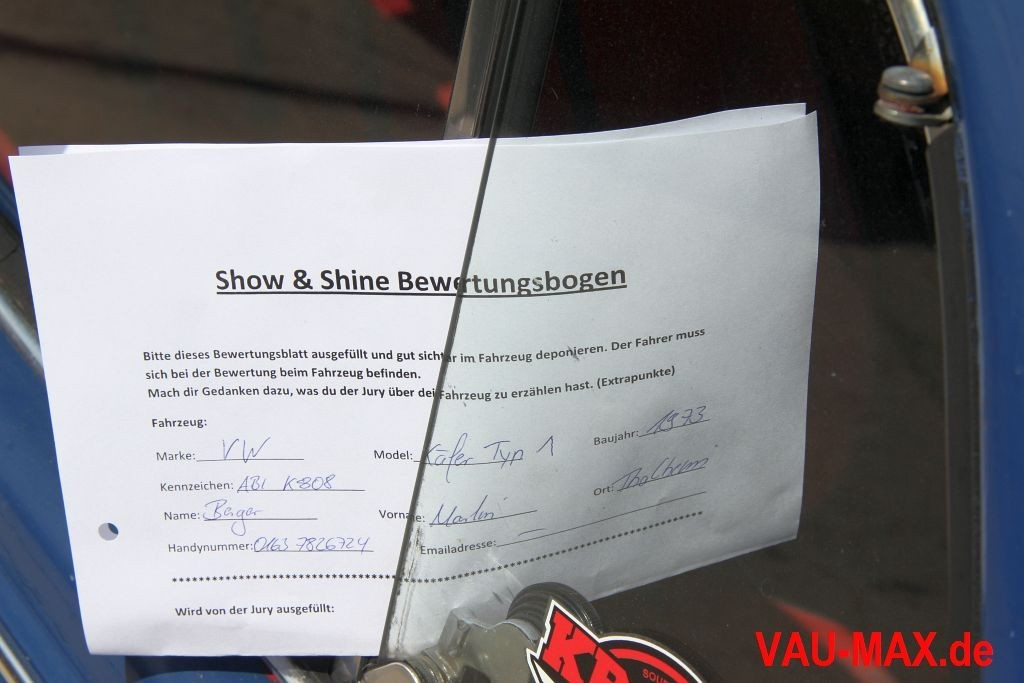 Show & Shine Bewertungsbogen
Bitte dieses Bewertungsblatt ausgefüllt und gut sichtbar im Fahrzeug deponieren. Der Fahrer muss
sich bei der Bewertung beim Fahrzeug befinden.
Mach dir Gedanken dazu, was du der Jury über dein Fahrzeug zu erzählen hast. (Extrapunkte)
Fahrzeug:
Marke: VW Model: Käfer Typ 1 Baujahr: 1973
Kennzeichen: ABI K808 Ort: Thalheim
Name: Berger Vorname: Martin
Handynummer: 0163 7826724 Emailadresse:
Wird von der Jury ausgefüllt:
VAU-MAX.de